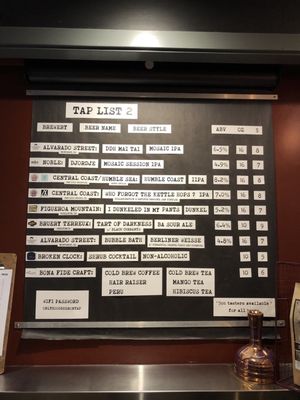 TAP LIST 2
BREWERY BEER NAME BEER STYLE ABV OZ $
ALVARADO STREET: DDH MAI TAI MOSAIC IPA 6.5% 16 8
NOBLE: DJORDJE MOSAIC SESSION IPA 4.9% 16 7
CENTRAL COAST/HUMBLE SEA: HUMBLE COAST IIPA 8.2% 16 8
CENTRAL COAST: WHO FORGOT THE KETTLE HOPS ? 7.0% 16 8
FIGUEROA MOUNTAIN: I DUNKELED IN MY PANTS DUNKEL 5.2% 16 7
BRUERY TERREUX: TART OF DARKNESS BA SOUR ALE 6.4% 10 9
W/ BLACK CURRANTS
ALVARADO STREET: BUBBLE BATH BERLINER WEISSE 4.8% 16 7
BROKEN CLOCK: SHRUB COCKTAIL NON-ALCOHOLIC 10 5
BONA FIDE CRAFT: COLD BREW COFFEE COLD BREW TEA 10 6
HAIR RAISER MANGO TEA
PERU HIBISCUS TEA
WIFI PASSWORD
tasters available
for all